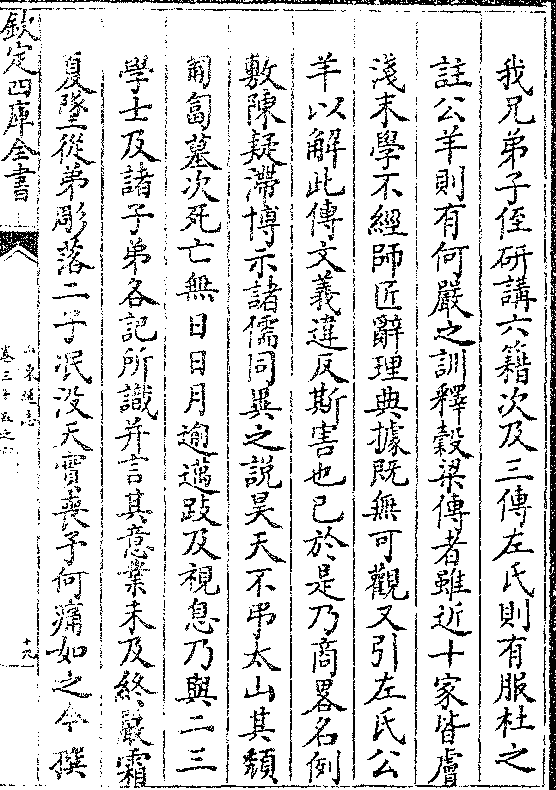 我兄弟子侄研講六籍次及三傳左氏則有服杜之
註公羊則有何嚴之訓釋榖梁傳者雖近十家皆膚
淺末學不經師匠辭理典據既無可觀又引左氏公
羊以解此傳文義違反斯害也已於是乃商畧名例
敷陳疑滯博示諸儒同異之說昊天不弔太山其頽
匍匐墓次死亡無日日月逾邁跂及視息乃與二三
學士及諸子弟各記所識并言其意業未及終嚴霜
夏墜從弟彫落二子泯没天實喪予何痛如之今撰
欽定四庫全書
山東通志
卷三十五之
十九